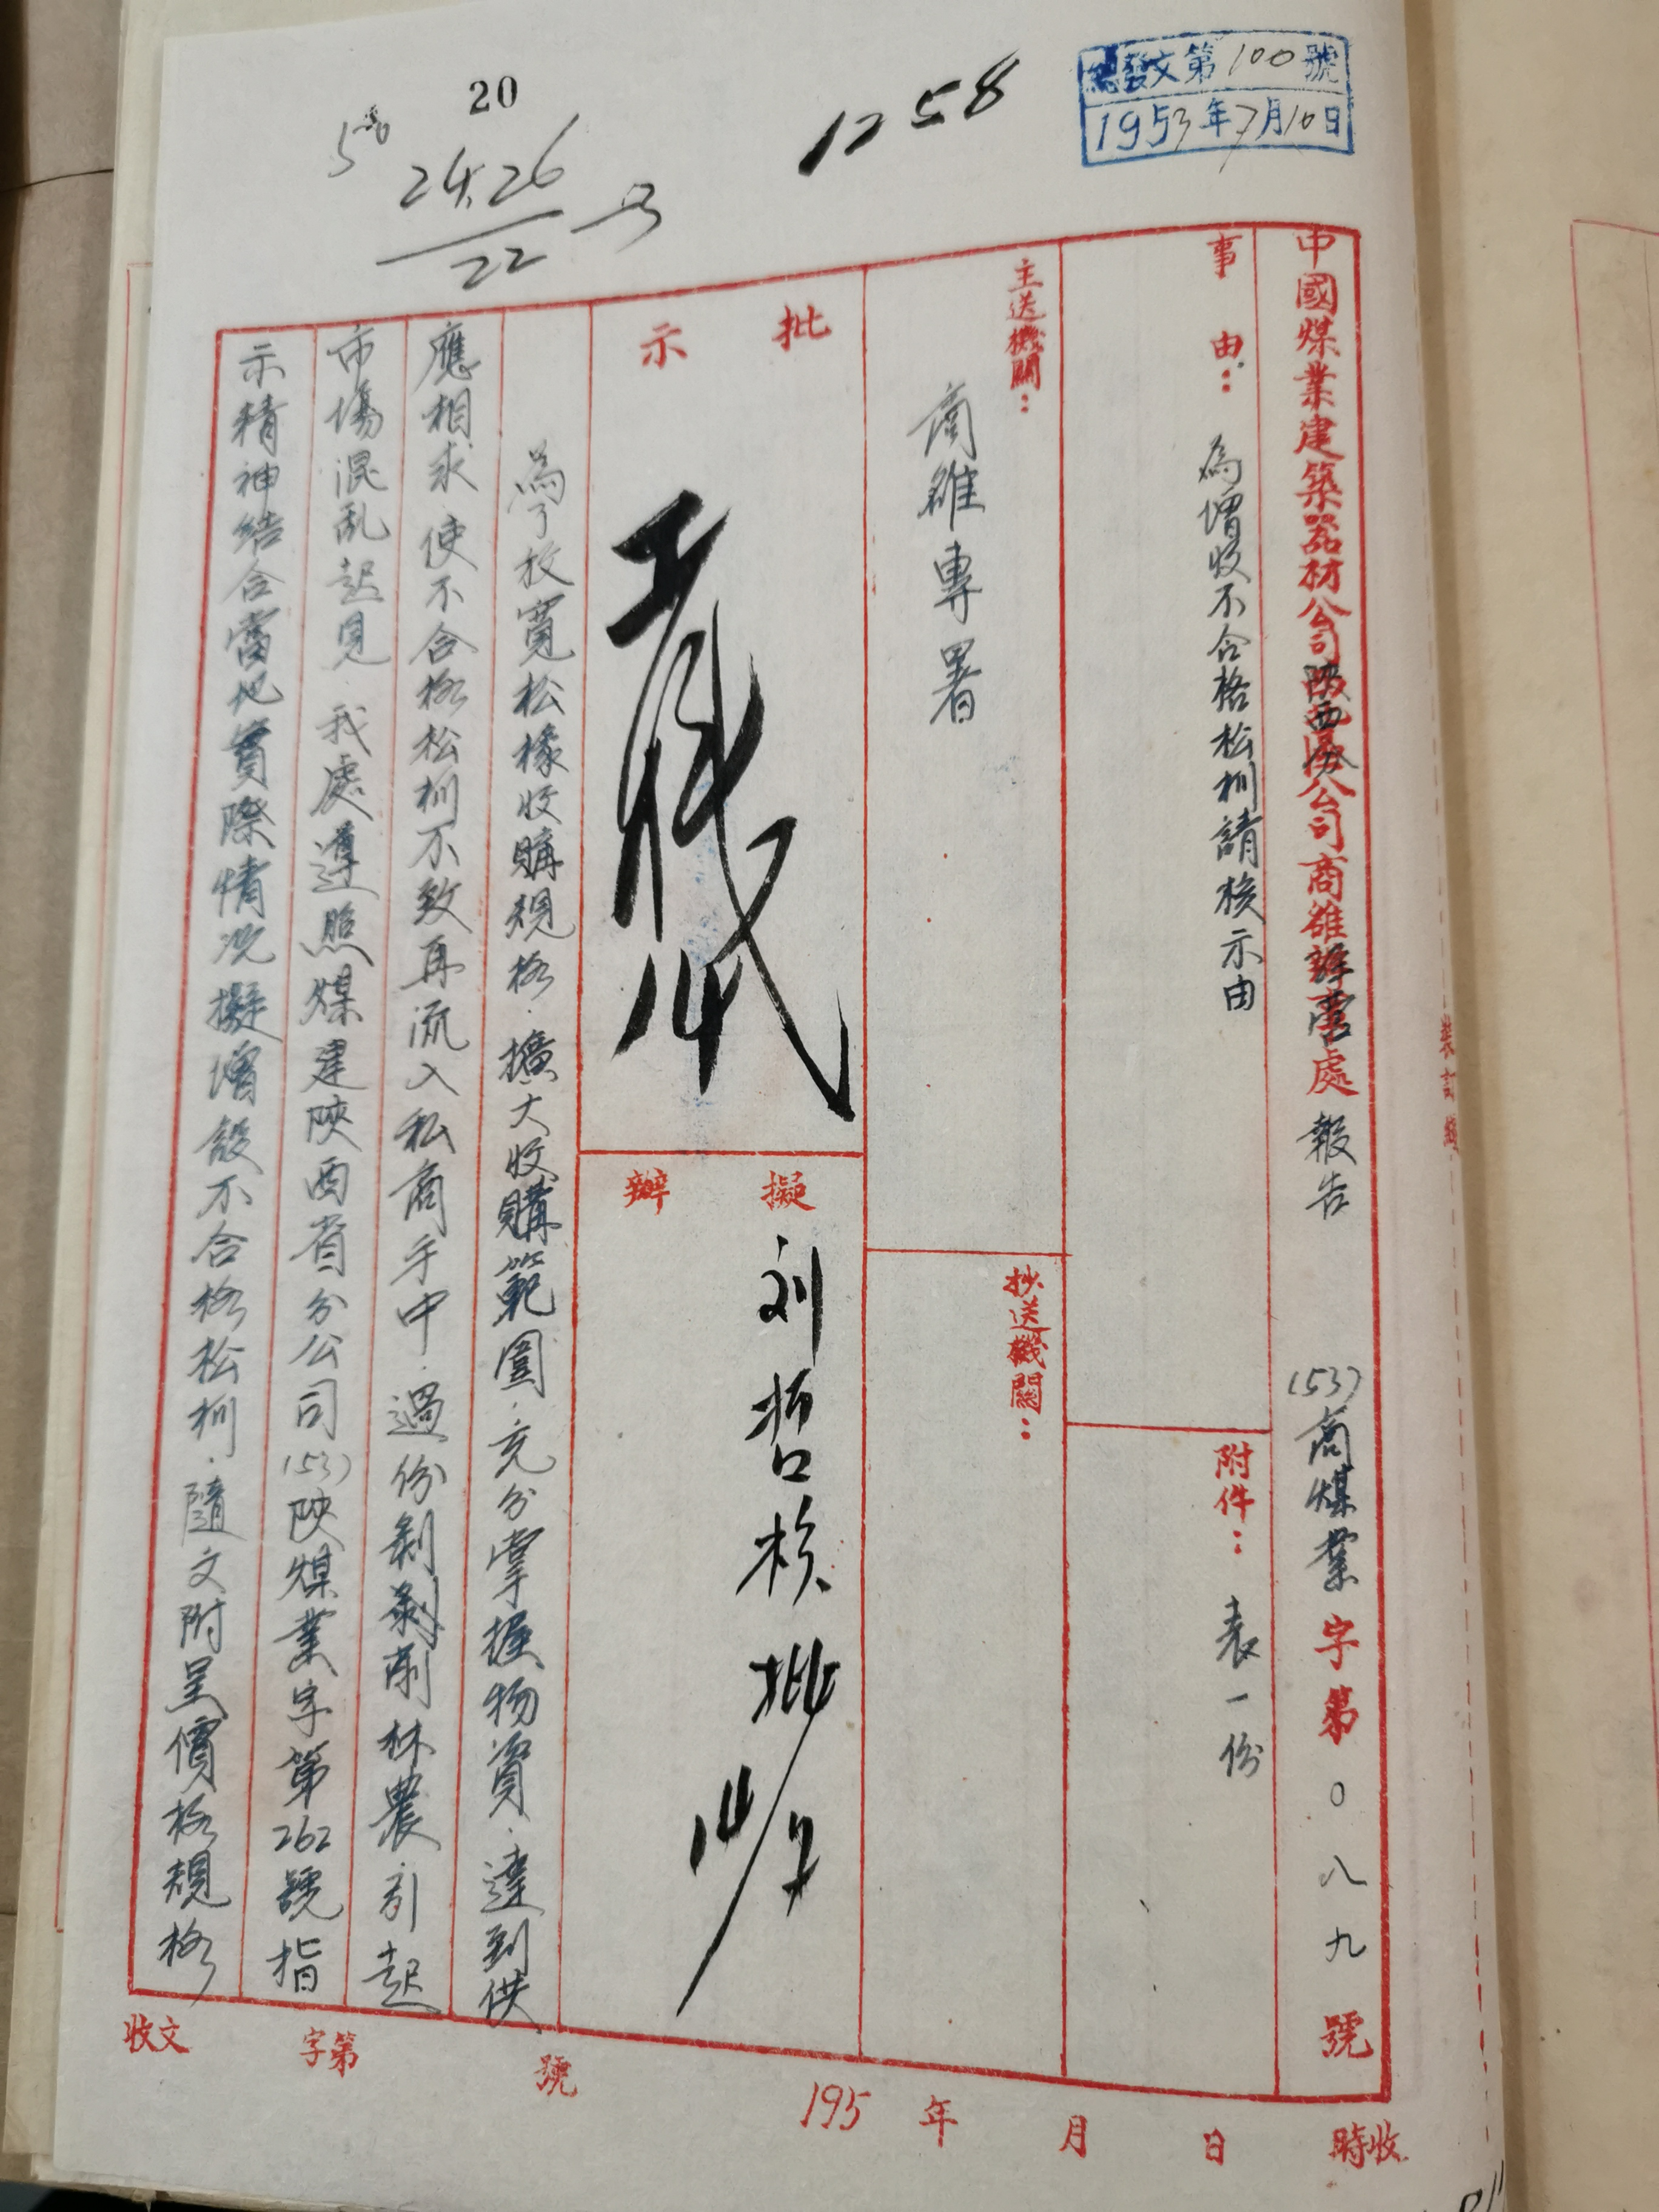 總發文第100號
1953年7月10日
1258
20
24.26
22
中國煤業建築器材公司陝西分公司商雒營處報告
(53)商煤業字第〇八九號
事由：為增收不合格松杊請核示由
附件：表一份
主送機關：商雒專署
抄送機關：
批示
擬辦
刘哲核批
為了放寬松椽收購規格．擴大收購範圍．充分掌握物資．達到供
應相求．使不合格松杊不致再流入私商手中．過份剝削林農．引起
市場混乱起見．我處遵照煤建陝西省分公司(53)陝煤業字第262號指
示精神結合當地實際情况擬增設不合格松杊．隨文附呈價格規格
裝訂線
收文
字第
號
195 年 月 日
收時